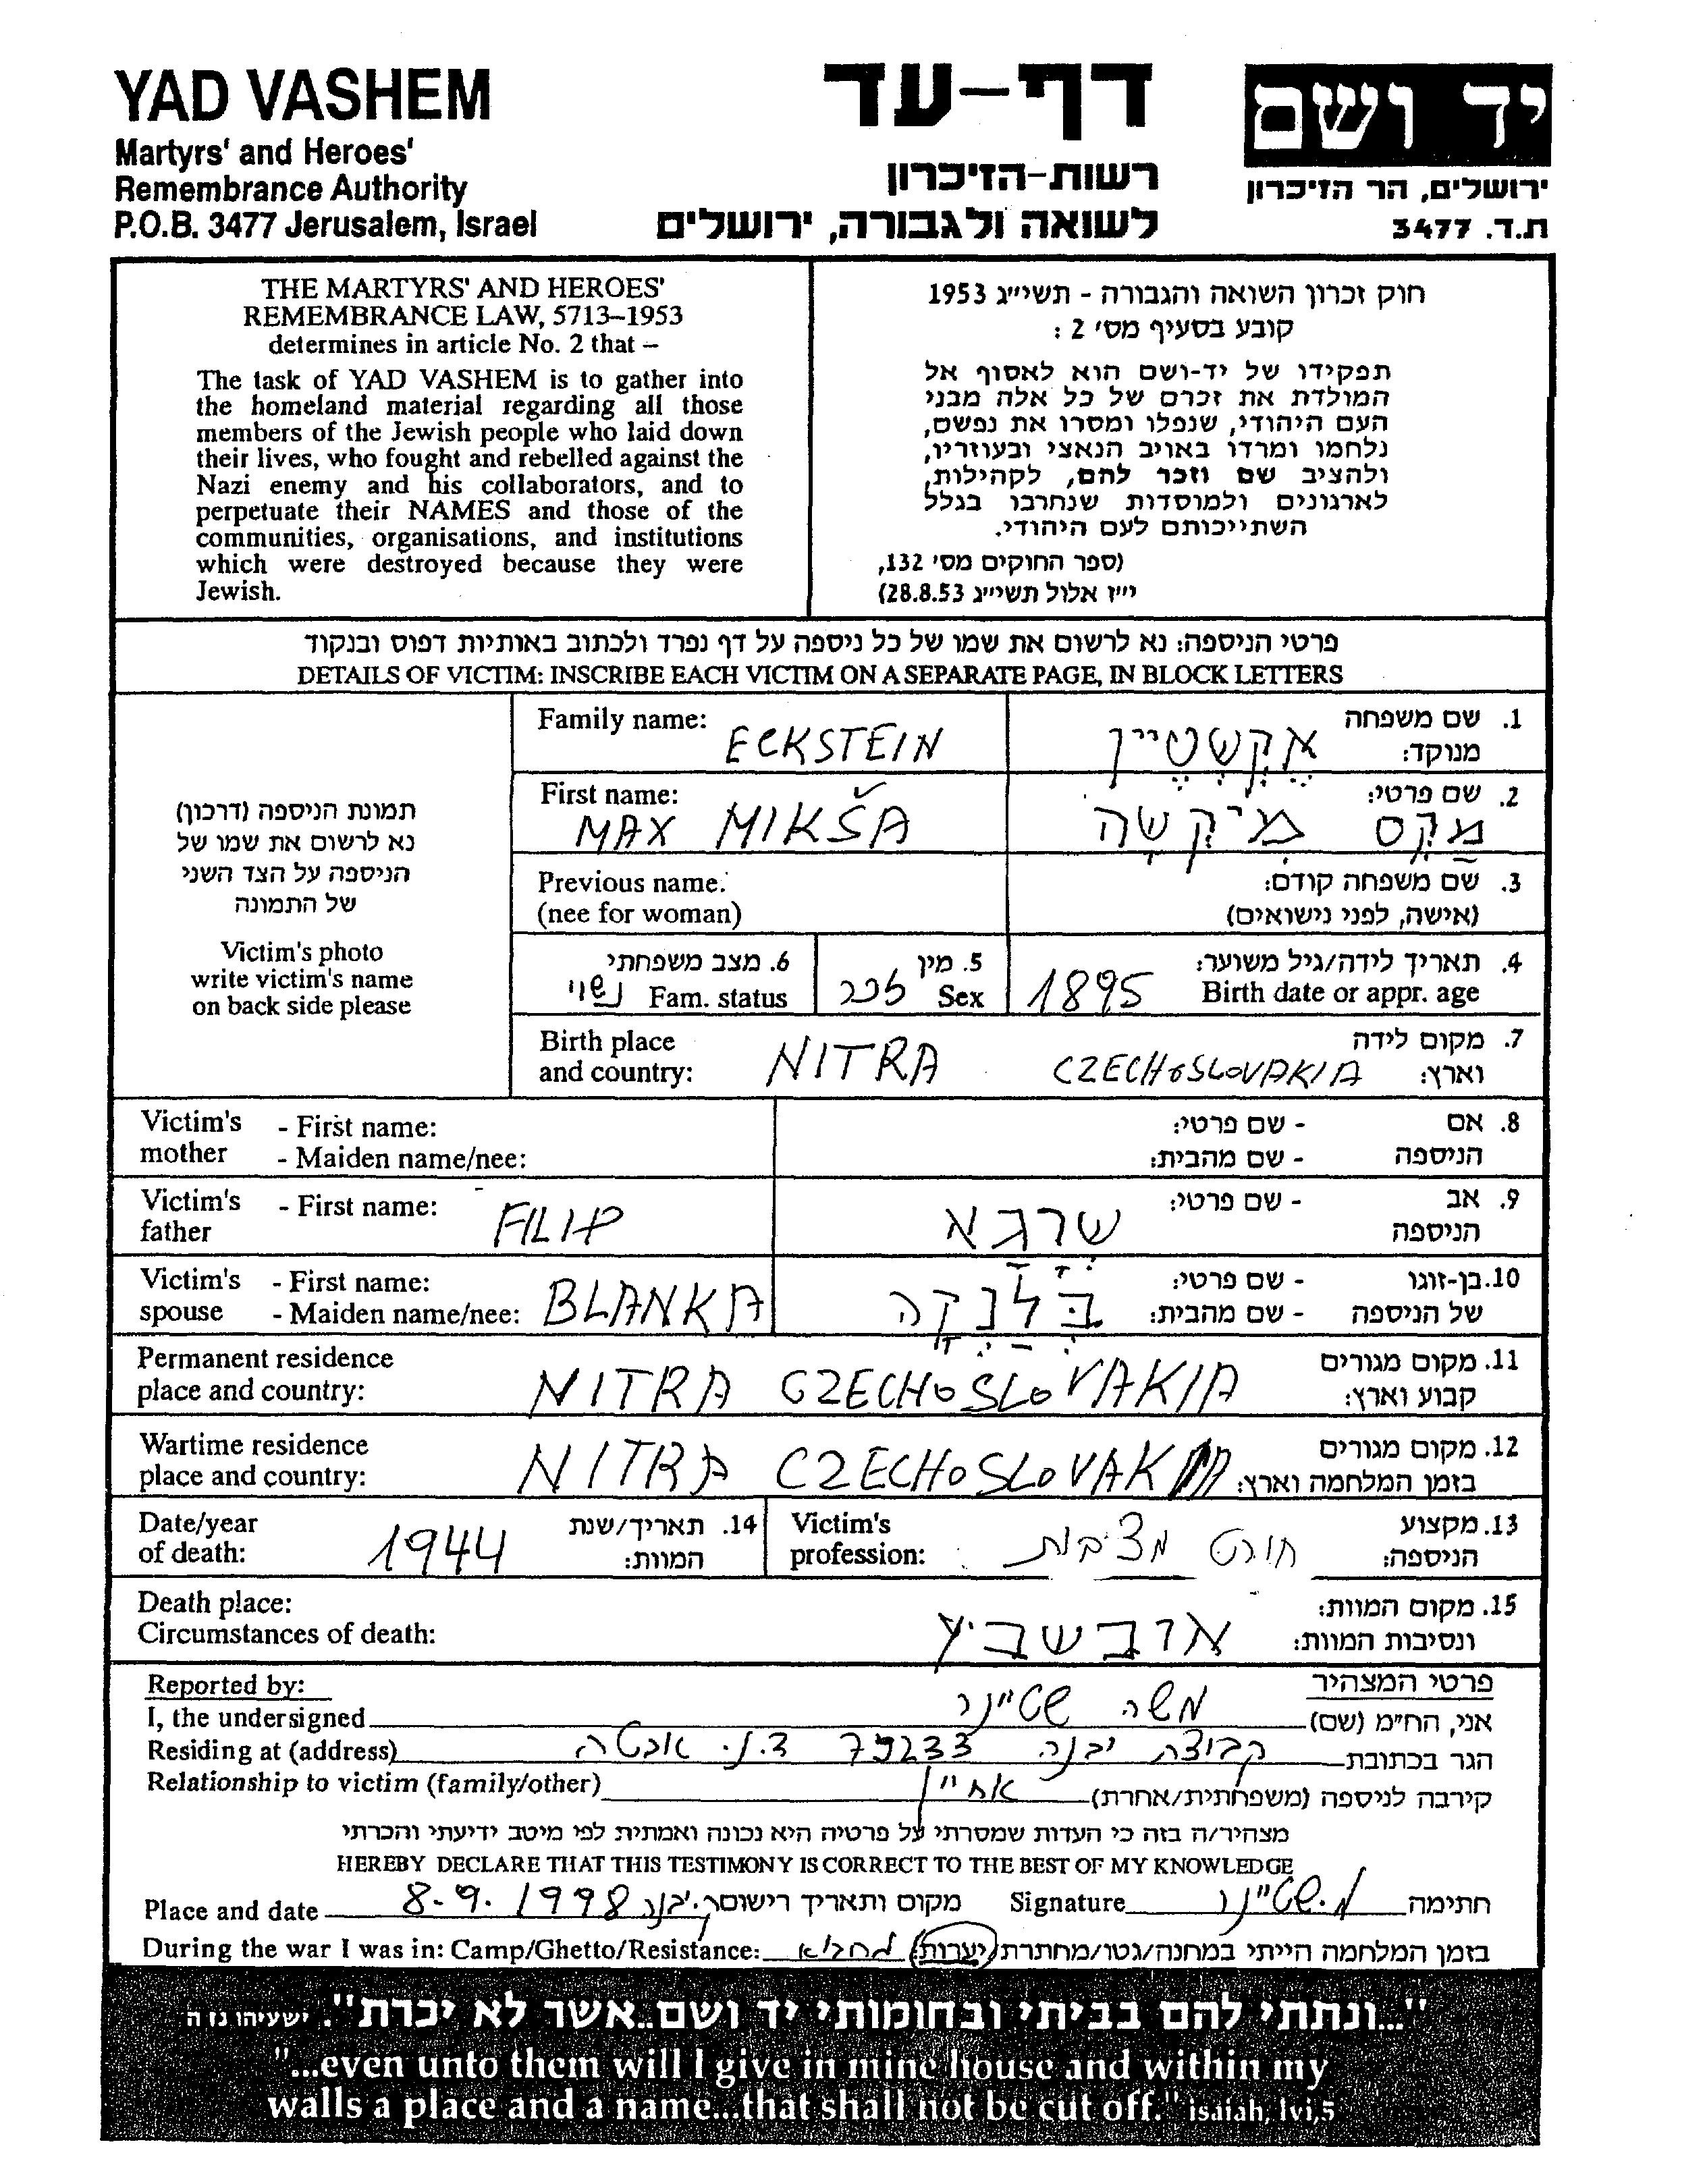 YAD VASHEM
Martyrs' and Heroes'
Remembrance Authority
P.O.B. 3477 Jerusalem, Israel
דף-עד
רשות-הזיכרון
לשואה ולגבורה, ירושלים
יד ושם
ירושלים, הר הזיכרון
ת.ד. 3477
THE MARTYRS' AND HEROES'
REMEMBRANCE LAW, 5713–1953
determines in article No. 2 that –
The task of YAD VASHEM is to gather into
the homeland material regarding all those
members of the Jewish people who laid down
their lives, who fought and rebelled against the
Nazi enemy and his collaborators, and to
perpetuate their NAMES and those of the
communities, organisations, and institutions
which were destroyed because they were
Jewish.
חוק זכרון השואה והגבורה - תשי״ג 1953
קובע בסעיף מס׳ 2 :
תפקידו של יד-ושם הוא לאסוף אל
המולדת את זכרם של כל אלה מבני
העם היהודי, שנפלו ומסרו את נפשם,
נלחמו ומרדו באויב הנאצי ובעוזריו,
ולהציב שם וזכר להם, לקהילות,
לארגונים ולמוסדות שנחרבו בגלל
השתייכותם לעם היהודי.
(ספר החוקים מס׳ 132,
י״ז אלול תשי״ג 28.8.53)
פרטי הניספה: נא לרשום את שמו של כל ניספה על דף נפרד ולכתוב באותיות דפוס ובנקוד
DETAILS OF VICTIM: INSCRIBE EACH VICTIM ON A SEPARATE PAGE, IN BLOCK LETTERS
תמונת הניספה (דרכון)
נא לרשום את שמו של
הניספה על הצד השני
של התמונה
Victim's photo
write victim's name
on back side please
Family name: ECKSTEIN אקשטיין 1. שם משפחה
מנוקד:
First name: 2. שם פרטי:
MAX MIKŠA מקס מיקשה
Previous name: 3. שם משפחה קודם:
(nee for woman) (אישה, לפני נישואים)
6. מצב משפחתי 5. מין 4. תאריך לידה/גיל משוער:
נשוי Fam. status זכר Sex 1895 Birth date or appr. age
Birth place 7. מקום לידה
and country: NITRA CZECHOSLOVAKIA וארץ:
Victim's - First name: - שם פרטי: 8. אם
mother - Maiden name/nee: - שם מהבית: הניספה
Victim's - First name: - שם פרטי: 9. אב
father FILIP שרגא הניספה
Victim's - First name: - שם פרטי: 10. בן-זוגו
spouse - Maiden name/nee: BLANKA בלנקה - שם מהבית: של הניספה
Permanent residence 11. מקום מגורים
place and country: NITRA CZECHOSLOVAKIA קבוע וארץ:
Wartime residence 12. מקום מגורים
place and country: NITRA CZECHOSLOVAKIA בזמן המלחמה וארץ:
Date/year 14. תאריך/שנת Victim's 13. מקצוע
of death: 1944 המוות: profession: חורט מציבות הניספה:
Death place: 15. מקום המוות:
Circumstances of death: אושביץ ונסיבות המוות:
Reported by: פרטי המצהיר
I, the undersigned משה שטיינר אני, הח״מ (שם)
Residing at (address) קבוצת יבנה 79233 ד.נ. אבטח הגר בכתובת
Relationship to victim (family/other) אחיין קירבה לניספה (משפחתית/אחרת)
מצהיר/ה בזה כי העדות שמסרתי על פרטיה היא נכונה ואמתית לפי מיטב ידיעתי והכרתי
HEREBY DECLARE THAT THIS TESTIMONY IS CORRECT TO THE BEST OF MY KNOWLEDGE
Place and date 8.9.1998 ק. יבנה מקום ותאריך רישום Signature מ. שטיינר חתימה
During the war I was in: Camp/Ghetto/Resistance: מחבוא בזמן המלחמה הייתי במחנה/גטו/מחתרת/(יערות)
"...ונתתי להם בביתי ובחומותי יד ושם..אשר לא יכרת". ישעיהו נו ה
"...even unto them will I give in mine house and within my
walls a place and a name...that shall not be cut off." isaiah, lvi,5